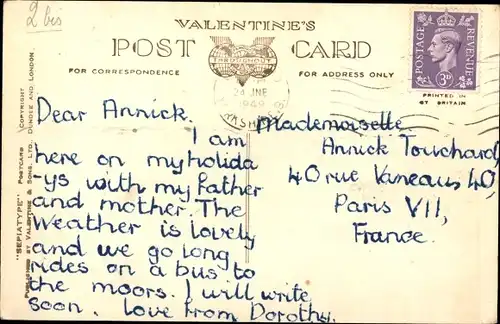 2 bis
VALENTINE'S
POST CARD
FOR CORRESPONDENCE
THROUGHOUT
FOR ADDRESS ONLY
POSTAGE
REVENUE
3D
PRINTED IN
GT BRITAIN
24 JNE
1949
"SEPIATYPE" POSTCARD COPYRIGHT
PUBLISHED BY VALENTINE & SONS, LTD. DUNDEE AND LONDON
Dear Annick.
I am
here on my holida
-ys with my father
and mother. The
weather is lovely
and we go long
rides on a bus to
the moors. I will write
soon. Love from Dorothy.
Mademoiselle
Annick Touchard,
40 rue Vaneau, 40,
Paris VII,
France.